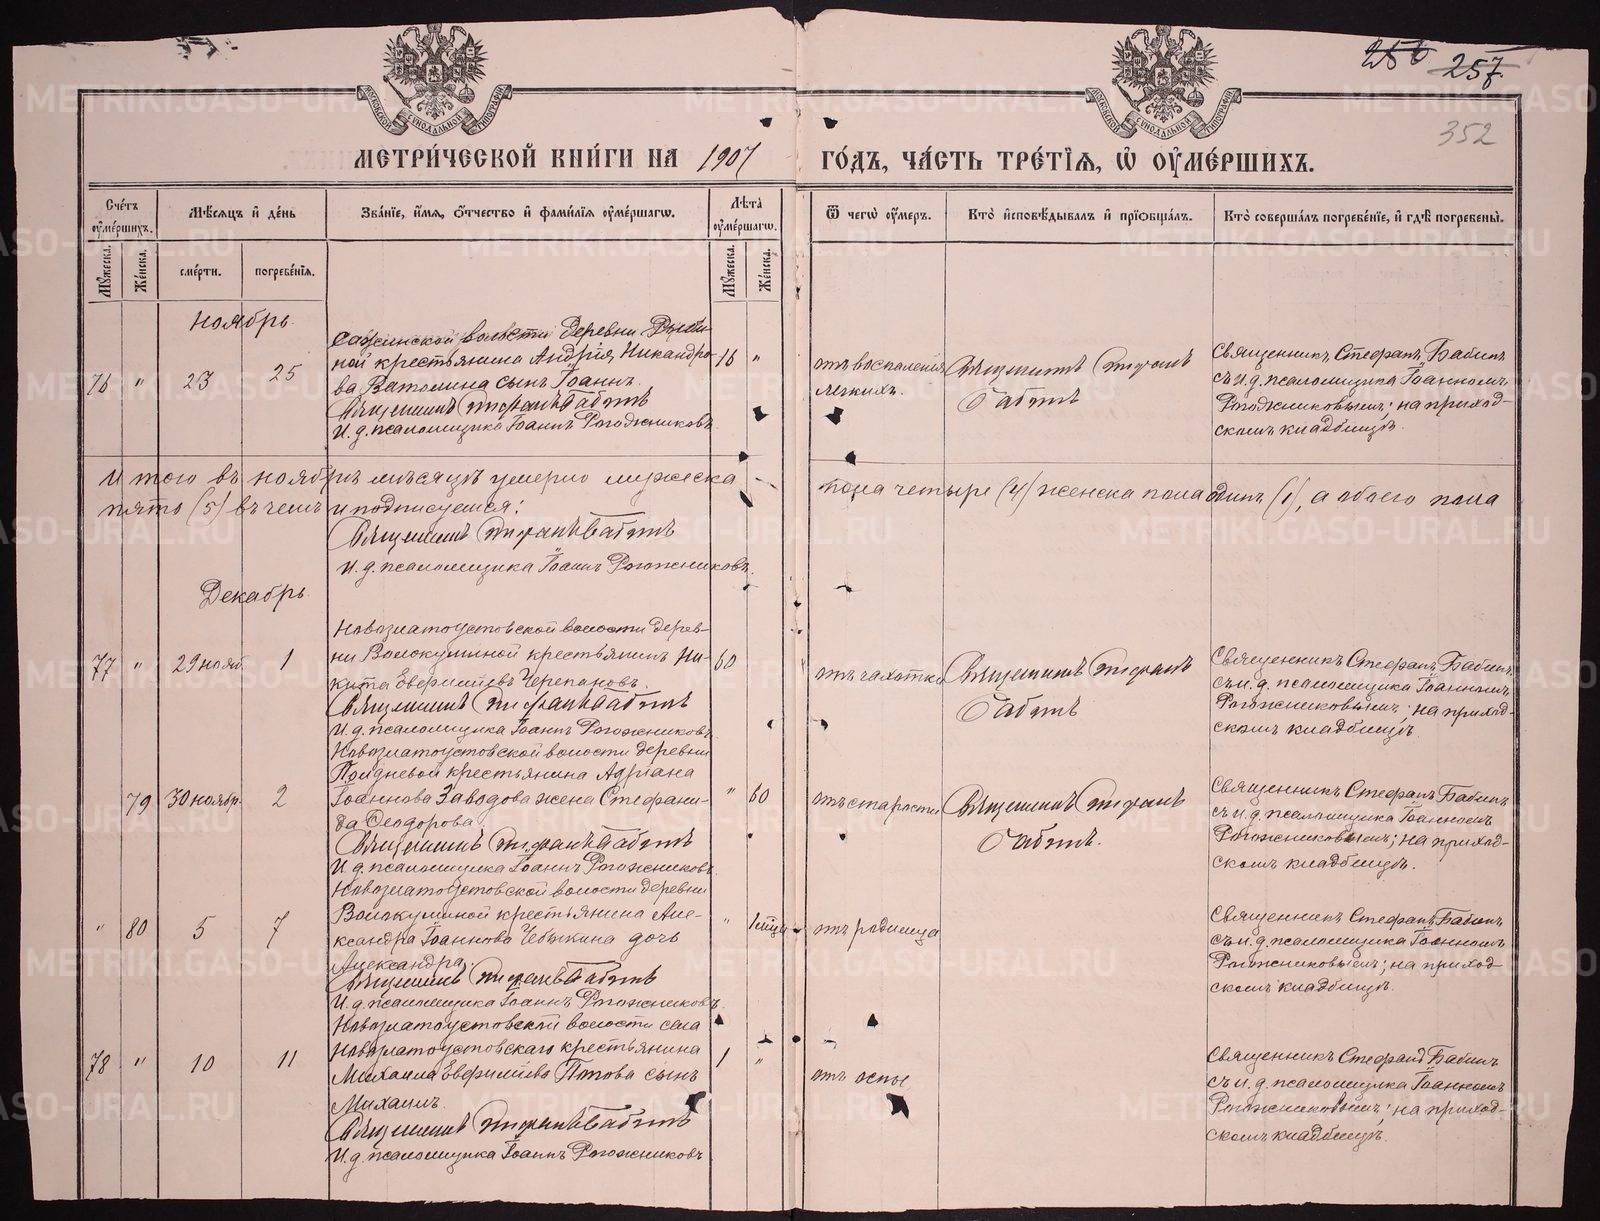 256 257
352
МОСКОВСКОЙ СѴНОДАЛЬНОЙ ТИПОГРАФІИ
МОСКОВСКОЙ СѴНОДАЛЬНОЙ ТИПОГРАФІИ
МЕТРИ́ЧЕСКОЙ КНИ́ГИ НА 1907 ГО́ДЪ, ЧА́СТЬ ТРЕ́ТІѦ, Ѿ ОУМЕ́РШИХЪ.
Сче́тъ оуме́ршихъ.
Мꙋ́жеска.
Же́нска.
Мѣ́сѧцъ и де́нь
сме́рти.
погребе́нія.
Зва́ніе, и́мѧ, ѻ́тчество и фами́лія оуме́ршагѡ.
Лѣ́та оуме́ршагѡ.
Мꙋ́жеска.
Же́нска.
Ѿ чегѡ̀ оу́меръ.
Кто̀ исповѣ́дывалъ и пріѡбща́лъ.
Кто̀ соверша́лъ погребе́ніе, и гдѣ̀ погребены̀.
Ноябрь
Сажинской волости деревни
ной крестьянина Андрія Никандро-
76 " 23 25 ва Ватолина сынъ Іоаннъ. 16 "
Священникъ Стефанъ Бабинъ
И. д. псаломщика Іоаннъ Рогожниковъ
отъ воспаленія
легкихъ.
Священникъ Стефанъ
Бабинъ
Священникъ Стефанъ Бабинъ
съ и. д. псаломщика Іоанномъ
Рогожниковымъ; на приход-
скомъ кладбищѣ.
Итого въ ноябрѣ мѣсяцѣ умерло мужеска пола четыре (4) женска пола одинъ (1), а обоего пола
пять (5) въ чемъ и подписуемся:
Священникъ Стефанъ Бабинъ
И. д. псаломщика Іоаннъ Рогожниковъ.
Декабрь
Новозлатоустовской волости дерев-
77 " 29 нояб. 1 ни Волокушиной крестьянинъ Ни- 60
кита Евфиміевъ Черепановъ.
Священникъ Стефанъ Бабинъ
И. д. псаломщика Іоаннъ Рогожниковъ
отъ чахотки
Священникъ Стефанъ
Бабинъ
Священникъ Стефанъ Бабинъ
съ и. д. псаломщика Іоанномъ
Рогожниковымъ; на приход-
скомъ кладбищѣ.
Новозлатоустовской волости деревни
крестьянина Адріана
79 30 ноябр. 2 Іоаннова Заводова жена Стефани- " 60
да Ѳеодорова
Священникъ Стефанъ Бабинъ
И. д. псаломщика Іоаннъ Рогожниковъ
отъ старости
Священникъ Стефанъ
Бабинъ.
Священникъ Стефанъ Бабинъ
съ и. д. псаломщика Іоанномъ
Рогожниковымъ; на приход-
скомъ кладбищѣ.
Новозлатоустовской волости деревни
" 80 5 7 Волокушиной крестьянина Але-
ксандра Іоаннова Чебыкина дочь " 1 мѣц
Александра.
Священникъ Стефанъ Бабинъ
И. д. псаломщика Іоаннъ Рогожниковъ.
отъ родимца
Священникъ Стефанъ Бабинъ
съ и. д. псаломщика Іоанномъ
Рогожниковымъ; на приход-
скомъ кладбищѣ.
Новозлатоустовской волости села
Новозлатоустовскаго крестьянина
78 " 10 11 Михаила Евфиміева Попова сынъ 1 "
Михаилъ.
Священникъ Стефанъ Бабинъ
И. д. псаломщика Іоаннъ Рогожниковъ
отъ оспы
Священникъ Стефанъ Бабинъ
съ и. д. псаломщика Іоанномъ
Рогожниковымъ; на приход-
скомъ кладбищѣ.
METRIKI.GASO-URAL.RU